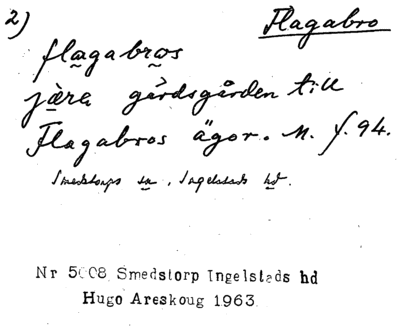 2) Flagabro
flagabros
jära gärdsgården till
Flagabros ägor. M. f. 94.
Smedstorps sn, Ingelstads hd.
Nr 5008 Smedstorp Ingelstads hd
Hugo Areskoug 1963